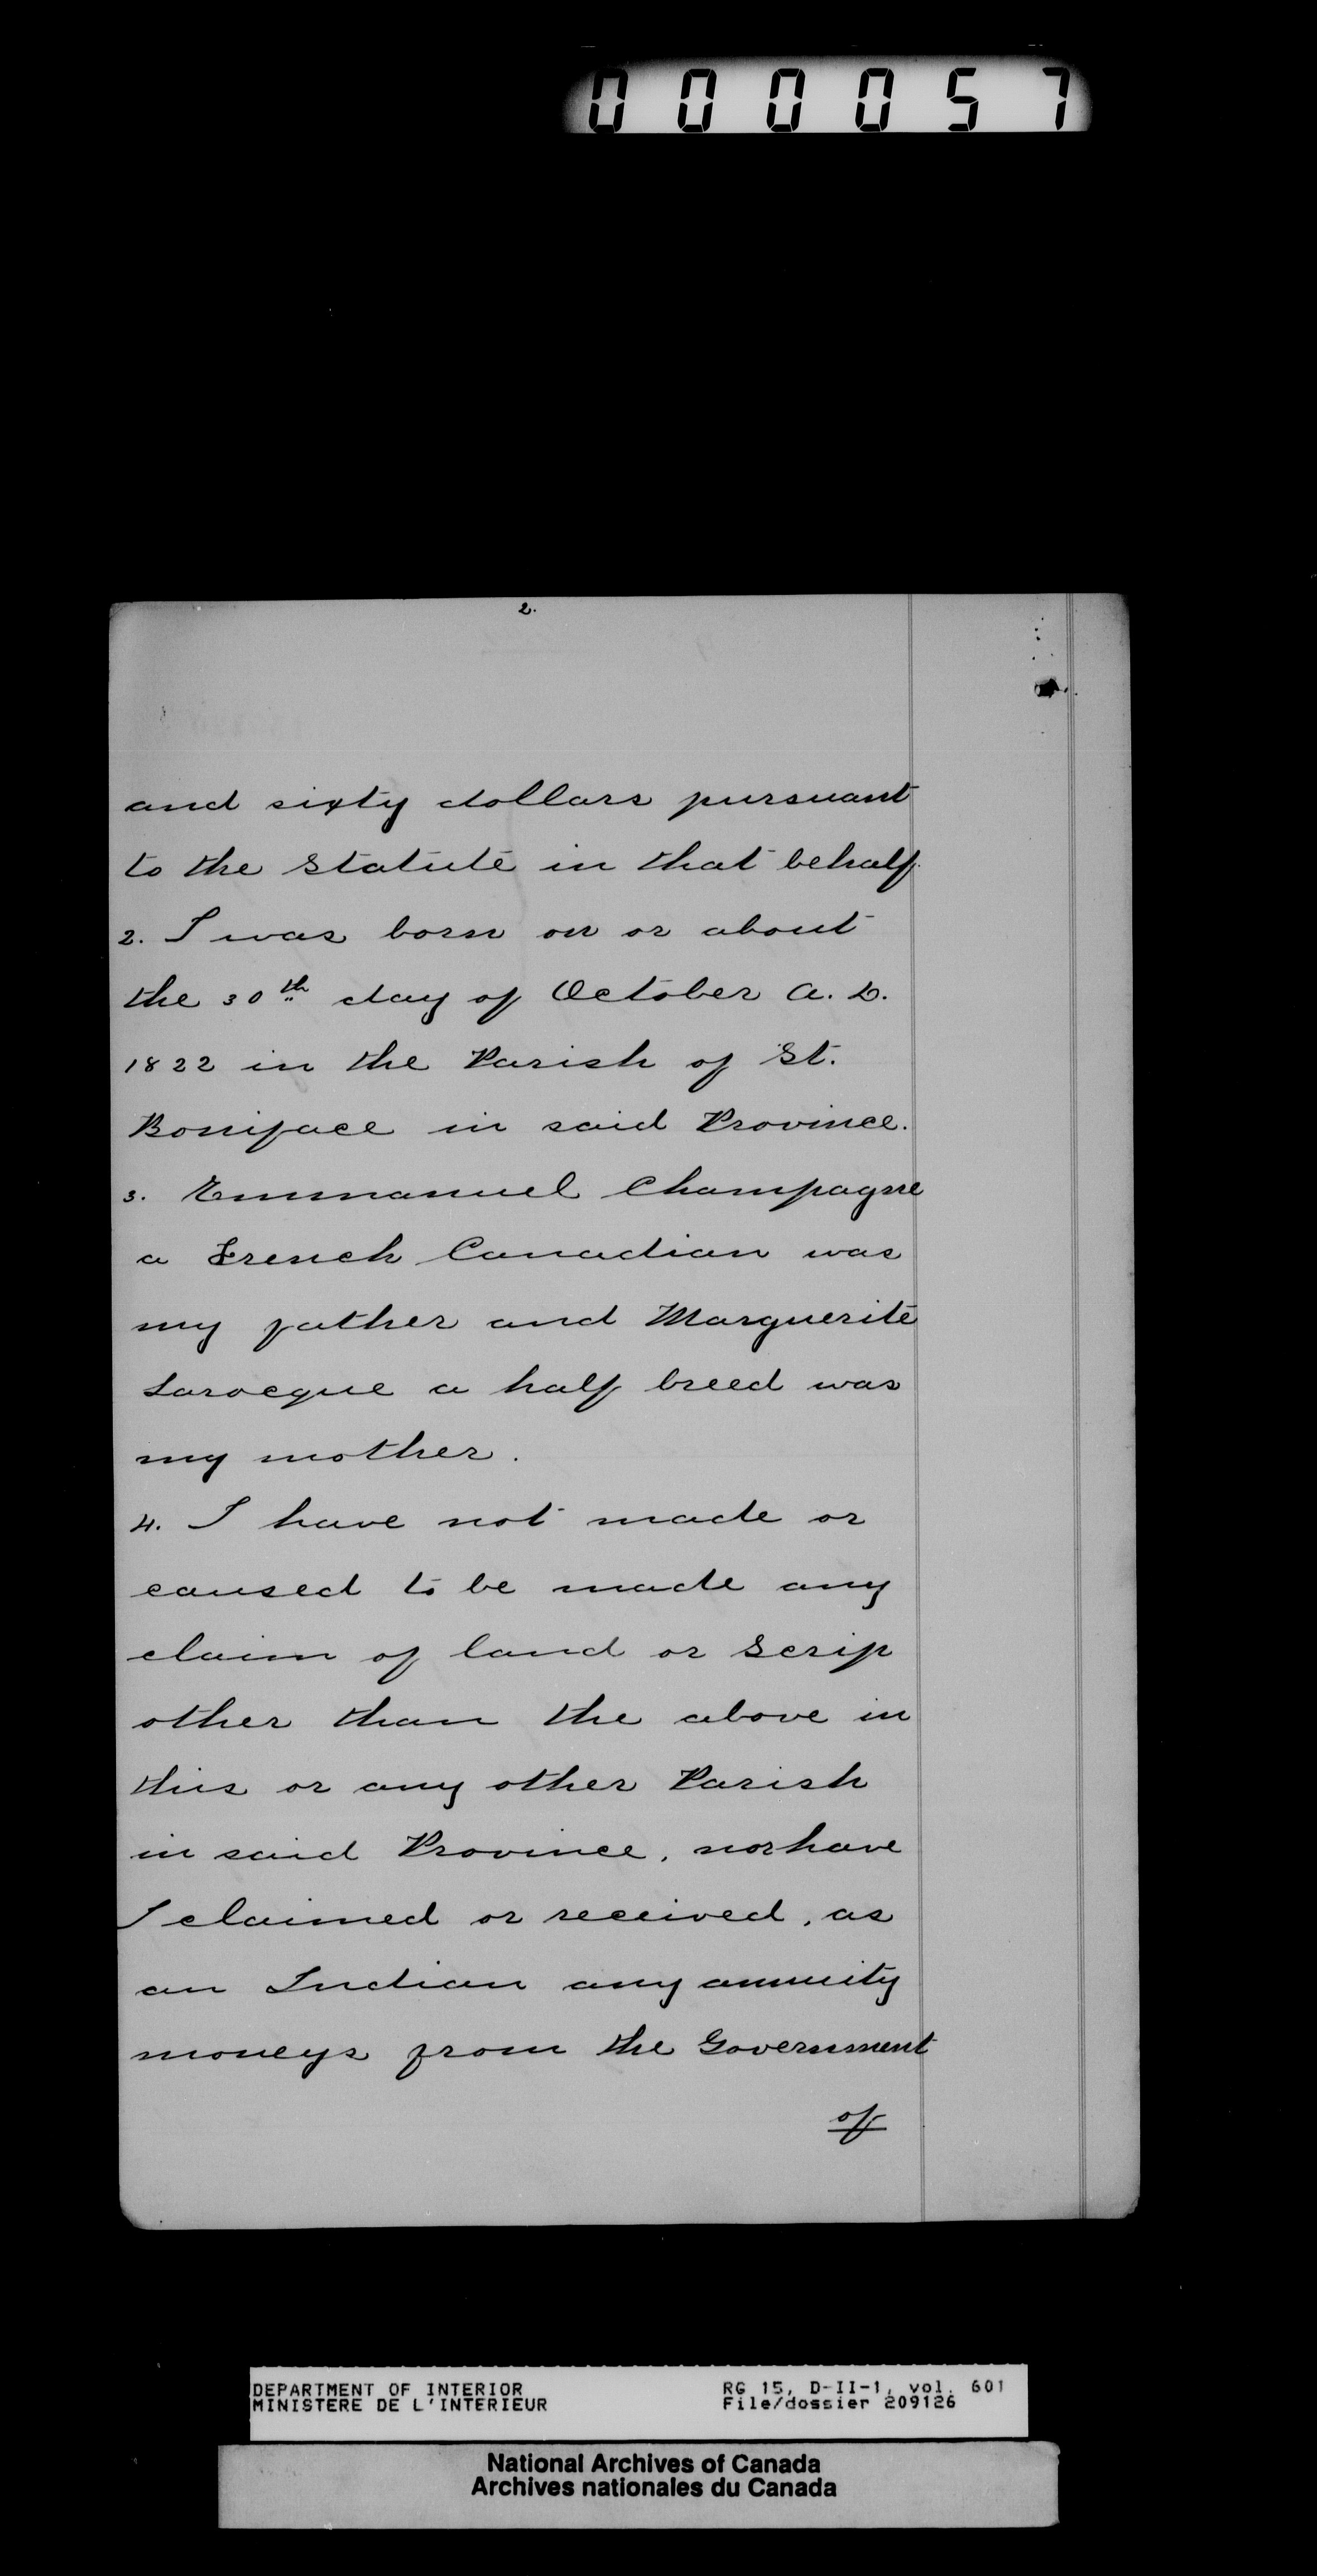 000057
2.
and sixty dollars pursuant
to the Statute in that behalf.
2. I was born on or about
the 30th day of October A. D.
1822 in the Parish of St.
Boniface in said Province.
3. Emmanuel Champagne
a French Canadian was
my father and Marguerite
Larocque a half breed was
my mother.
4. I have not made or
caused to be made any
claim of land or scrip
other than the above in
this or any other Parish
in said Province, nor have
I claimed or received, as
an Indian any annuity
moneys from the Government
of
DEPARTMENT OF INTERIOR RG 15, D-II-1, vol. 601
MINISTERE DE L'INTERIEUR File/dossier 209126
National Archives of Canada
Archives nationales du Canada